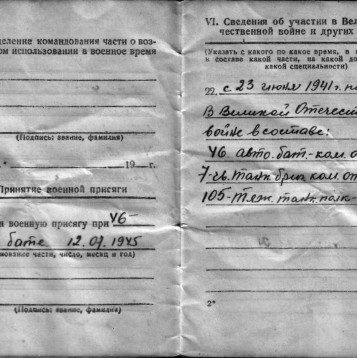 еделение командования части о воз-
ом использовании в военное время
(Подпись: звание, фамилия)
19 г.
Принятие военной присяги
а военную присягу при 46-
бате 12.01.1945
нование части, число, месяц и год)
(Подпись: звание, фамилия)
VI. Сведения об участии в Вел
чественной войне и других
(Указать с какого по какое время, в
в составе какой части, на какой до
какой специальности)
22. с 23 июня 1941 г. по
В Великой Отечест
войне в составе:
46. авто. бат.- ком. о
7-гв. танк бриг ком. от
105-тяж. танк. полк-
2*